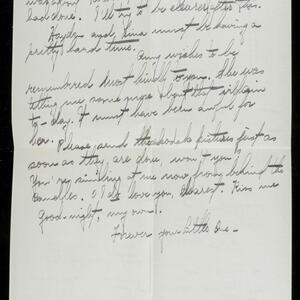 back done. I'll try to be clearer after this.
and Lina must be having a
pretty hard time.
Amy wishes to be
remembered most kindly to you. She was
telling me some more about the
to-day. It must have been awful for
her.
Please send the kodak pictures just as
soon as they are done, won't you?
You're smiling at me now from behind the
candles. I do love you, dearest. Kiss me
good-night, my own.
Forever your little one-